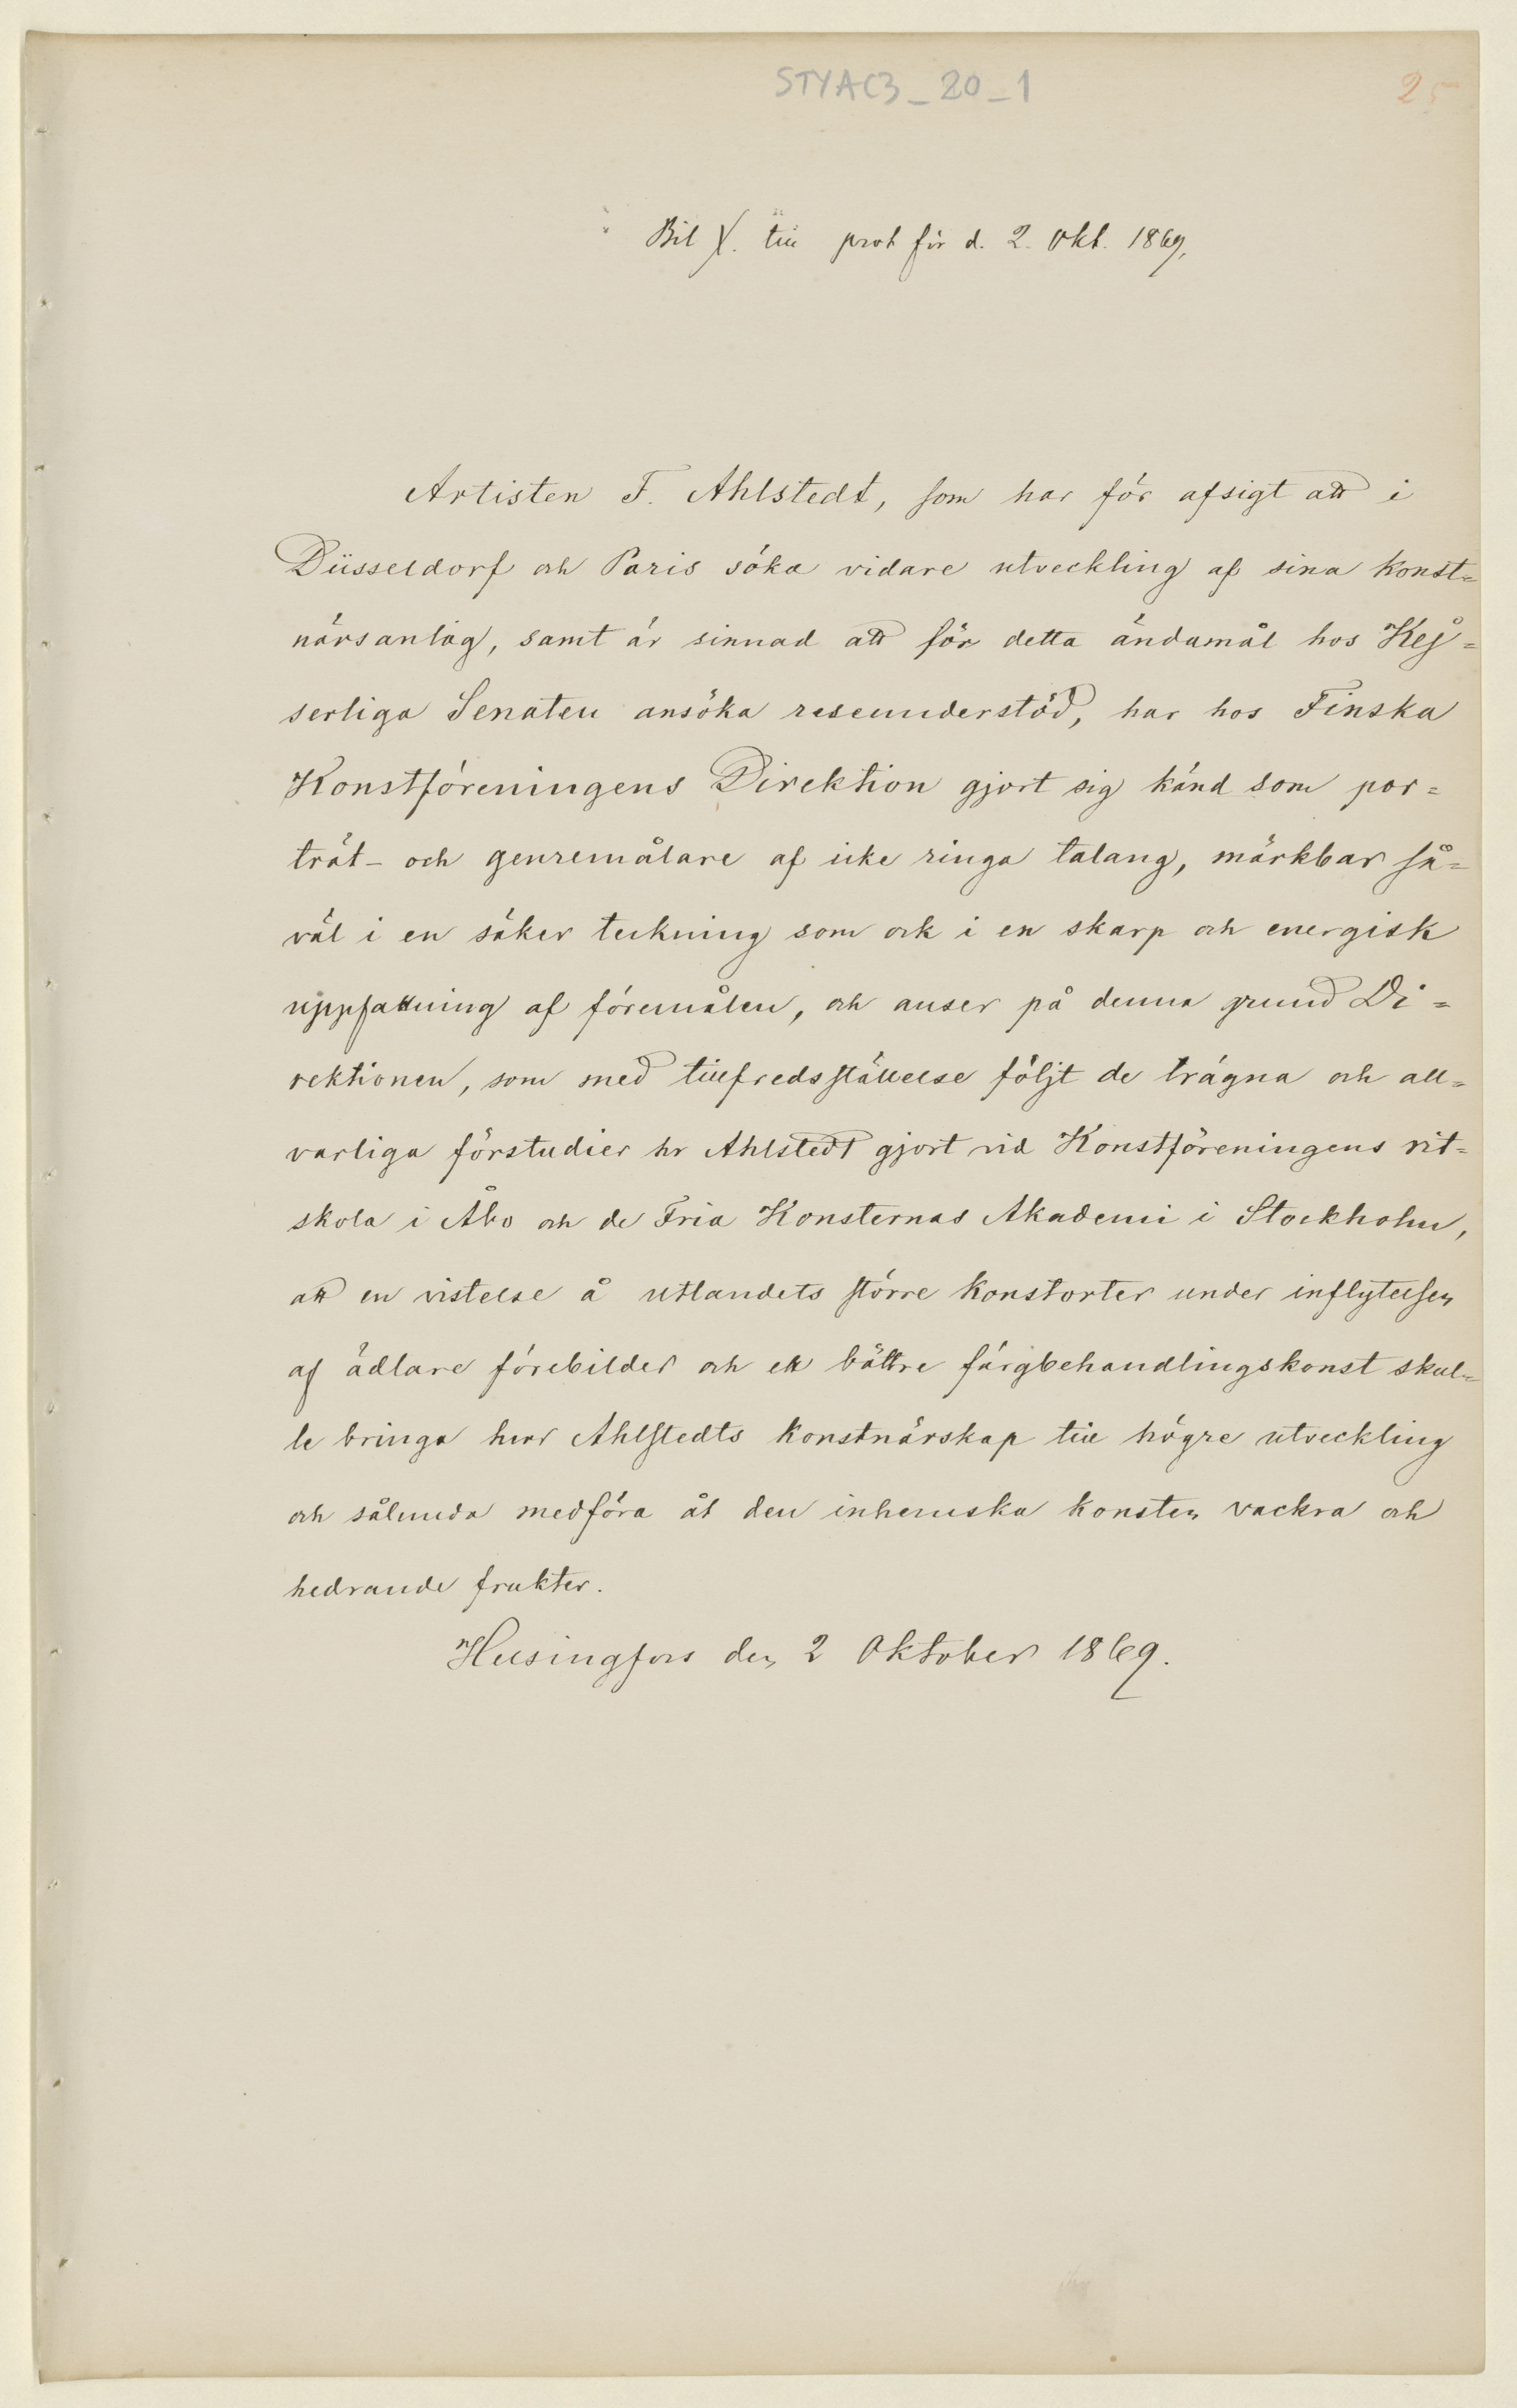 STYAC3_20_1
25
Bil X. till prot för d. 2. Okt. 1869,
Artisten F. Ahlstedt, som har för afsigt att i
Düsseldorf och Paris söka vidare utveckling af sina konst=
närsanlag, samt är sinnad att för detta ändamål hos Kej=
serliga Senaten ansöka reseunderstöd, har hos Finska
Konstföreningens Direktion gjort sig känd som por=
trät- och genremålare af icke ringa talang, märkbar så=
väl i en säker teckning som ock i en skarp och energisk
uppfattning af föremålen, och anser på denna grund Di=
rektionen, som med tillfredsställelse följt de trägna och all=
varliga förstudier hr Ahlstedt gjort vid Konstföreningens rit=
skola i Åbo och de Fria Konsternas Akademi i Stockholm,
att en vistelse å utlandets större konstorter under inflytelsen
af ädlare förebilder och ett bättre färgbehandlingskonst skul=
le bringa herr Ahlstedts konstnärskap till högre utveckling
och sålunda medföra åt den inhemska konsten vackra och
hedrande frukter.
Helsingfors den 2 Oktober 1869.